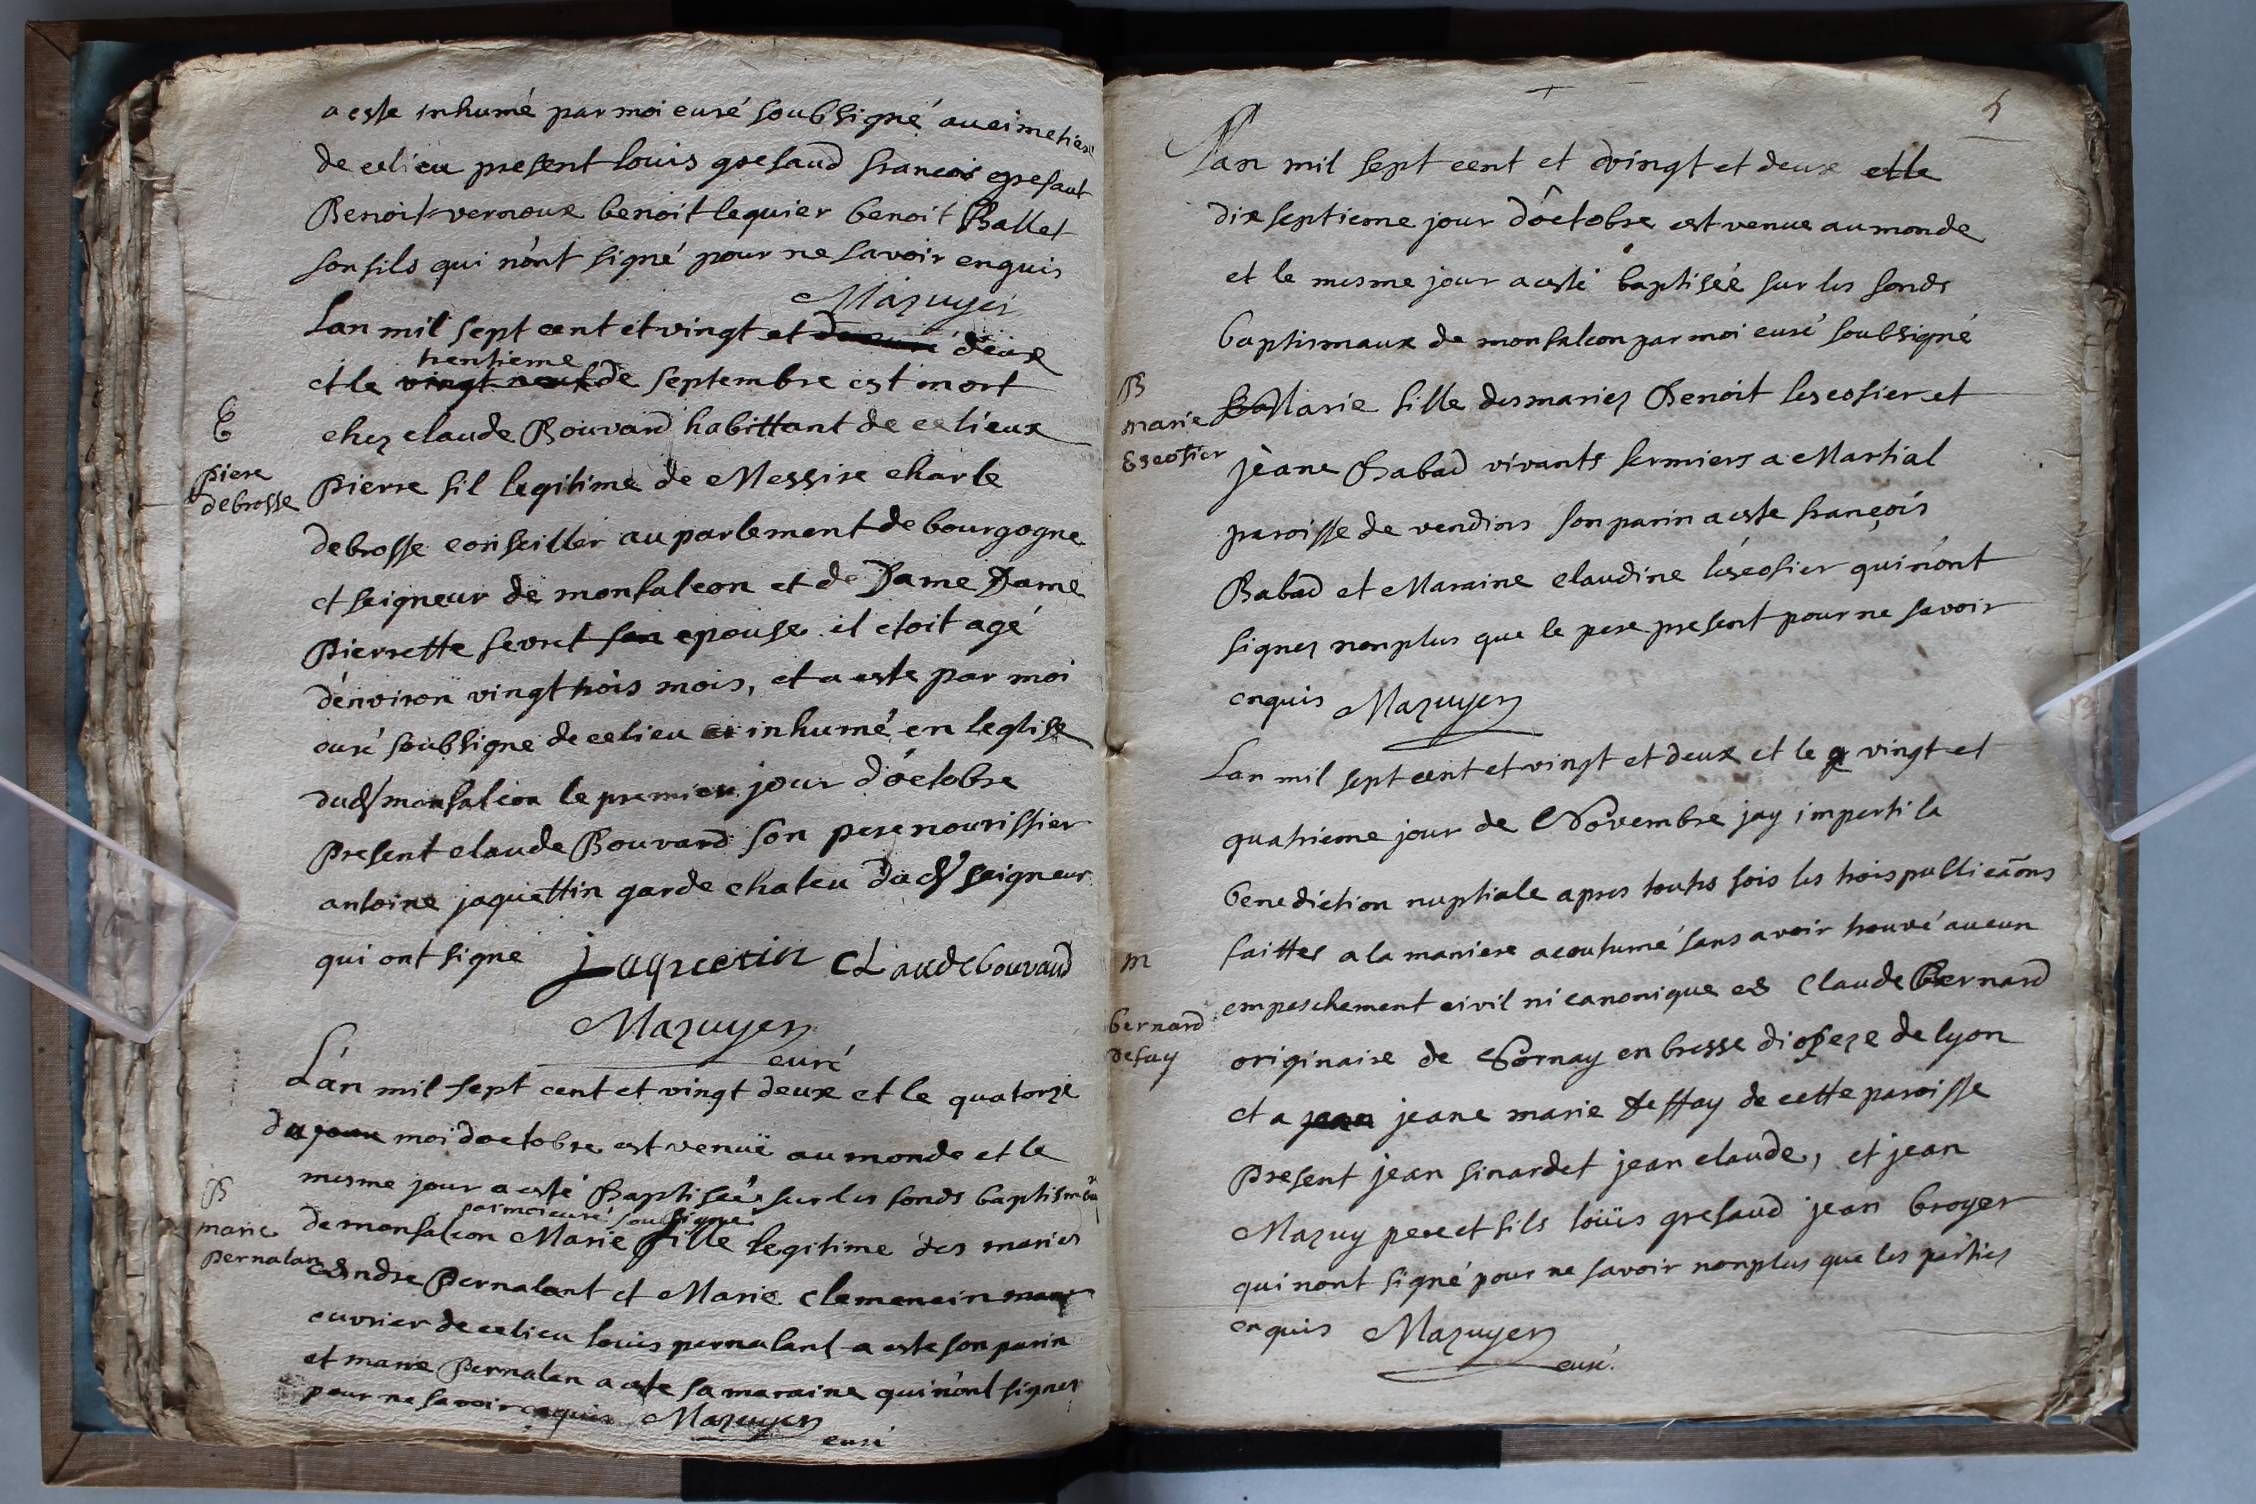 a este inhumé par moi curé soubsigné au cimetiere
de celieu present louis gresaud francois gresaut
Benoit vernoux benoit lequier benoit Ballet
son fils qui n'ont signé pour ne savoir enquis
Mazuyer
Lan mil sept cent et vingt et deux
trentieme
et le vingt neuf de septembre est mort
chez claude Bouvard habittant de ce lieux
E
piere
debrosse
Pierre fil legitime de Messire charle
debrosse conseiller au parlement de bourgogne
et seigneur de monfalcon et de Dame Dame
Pierrette fevret son epouse il etoit agé
d'environ vingt trois mois, et a este par moi
curé soubsigne de celieu inhumé en leglise
dud monfalcon le premier jour d'octobre
Present claude Bouvard son pere nourissier
antoine jaquettin garde chateu dud seigneur
qui ont signe jaquetin CLaude bouvard
Mazuyer
curé
L'an mil sept cent et vingt deux et le quatorze
du jour moi doctobre est venuë au monde et le
mesme jour a esté Baptisée sur les fonds baptismau
par moi curé soubsigné
B
marie
Pernalan
de monfalcon Marie fille legitime des maries
Andre Pernalant et Marie clemencin
ouvrier de celieu louis pernalant a este son parin
et marie Pernalan a este sa maraine qui n'ont signer
pour ne savoir enquis Mazuyer
curé
5
Lan mil sept cent et vingt et deux et le
dix septieme jour d'octobre est venue au monde
et le mesme jour a esté baptisée sur les fonds
baptismaux de monfalcon par moi curé soubsigné
B
marie
Escosier
Marie fille des maries Benoit lescosier et
jeane Babad vivants fermiers a Martial
paroisse de vendins son parin a este françois
Babad et Maraine claudine léscosier qui n'ont
signez non plus que le pere present pour ne savoir
enquis Mazuyer
Lan mil sept cent et vingt et deux et le vingt et
quatrieme jour de Novembre jay imparti la
benediction nuptiale apres toutes fois les trois publicaõns
faittes a la maniere acoutumé sans avoir trouvé aucun
m
bernard
defay
empeschement civil ni canonique a Claude Bernard
originaire de Sornay en bresse dioseze de lyon
et a jeane marie deffay de cette paroisse
Present jean sinardet jean claude, et jean
Mazuy pere et fils loüis gresaud jean broyer
qui nont signé pour ne savoir non plus que les parties
enquis Mazuyer
curé.